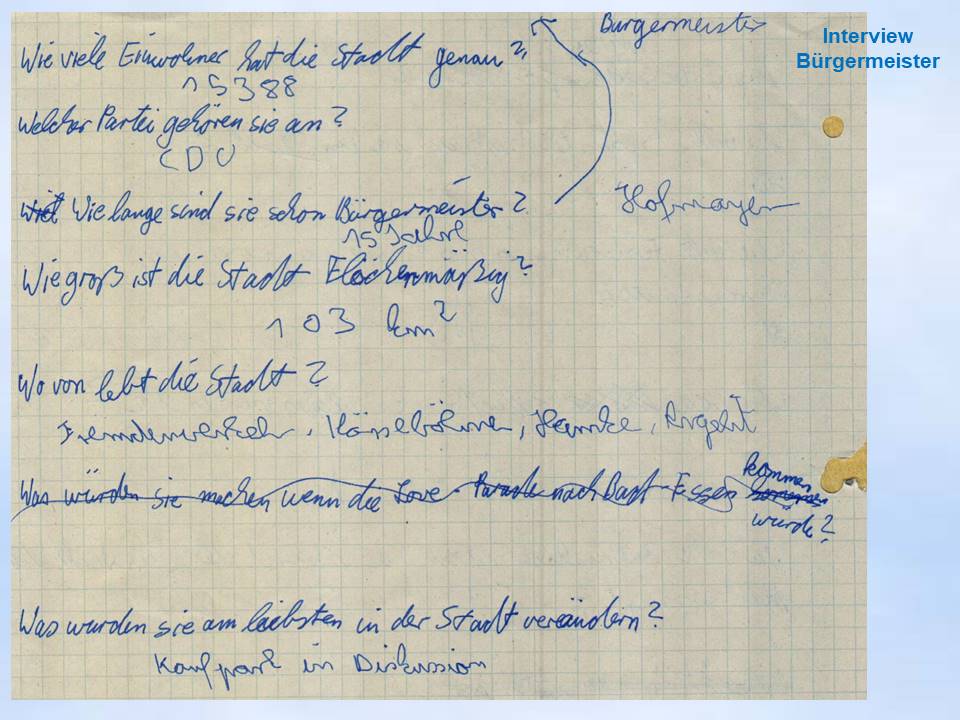 Interview
Bürgermeister
Bürgermeister
Wie viele Einwohner hat die Stadt genau?
15388
Welcher Partei gehören sie an?
CDU
Wie lange sind sie schon Bürgermeister?
Hofmayer
15 Jahre
Wie groß ist die Stadt Flächenmäßig?
103 km²
Wo von lebt die Stadt?
Fremdenverkehr,
Was würden sie machen wenn die Love-Parade nach Bad-Essen kommen
würde?
Was wurden sie am liebsten in der Stadt verändern?
Kaufpark in Diskussion